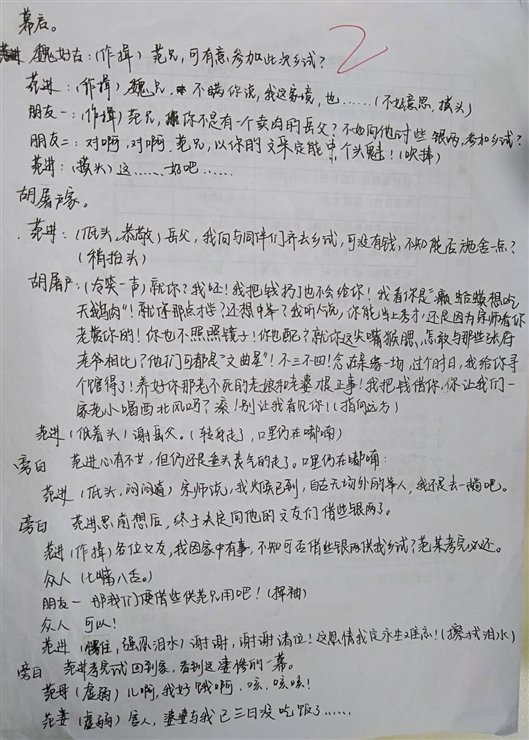 幕启。
2
魏好古：（作揖）范兄，可有意参加此次乡试？
范进：（作揖）魏兄，不瞒你说，我这家境，也……（不好意思，挠头）
朋友一：（作揖）范兄，你不是有一个卖肉的岳父？不如向他讨些银两，参加乡试？
朋友二：对啊，对啊，范兄，以你的文采定能中个头魁！（吹捧）
范进：（挠头）这……好吧……
胡屠户家。
范进：（低头，恭敬）岳父，我向与同伴们齐去乡试，可没有钱，不知能否施舍一点？
（稍抬头）
胡屠户：（冷笑一声）就你？我呸！我把钱扔了也不会给你！我看你是“癞蛤蟆想吃
天鹅肉”！就你那点才学？还想中举？我听人说，你能当上秀才，还是因为宗师看你
老赏你的！你也不照照镜子！你也配？就你这尖嘴猴腮，怎敢与那些张府
老爷相比？他们可都是“文曲星”！不三不四！念在亲缘一场，过个时日，我给你寻
个馆得了！养好你那老不死的老娘和老婆是正事！我把钱借你，你让我们一
家老小喝西北风吗？滚！别让我看见你！（指向远方）
范进（低着头）谢岳父。（转身走了，口里仍在嘟喃）
旁白 范进心有不甘，但仍还是垂头丧气的走了。口里仍在嘟喃：
范进（低头，闷闷道）宗师说，我火候已到，自古无场外的举人，我还是去一趟吧。
旁白 范进思前想后，终于决定向他的文友们借些银两了。
范进（作揖）各位文友，我因家中有事，不知可否借些银两供我乡试？范某考完必还。
众人（七嘴八舌。）
朋友一 那我们便借些供范兄用吧！（挥袖）
众人 可以！
范进（强忍泪水）谢谢，谢谢诸位！这恩情我定永生难忘！（擦拭泪水）
旁白 范进考完试回到家，看到这凄惨的一幕。
范母（虚弱）儿啊，我好饿啊，咳，咳咳！
范妻（虚弱）官人，婆婆与我已三日没吃饭了……